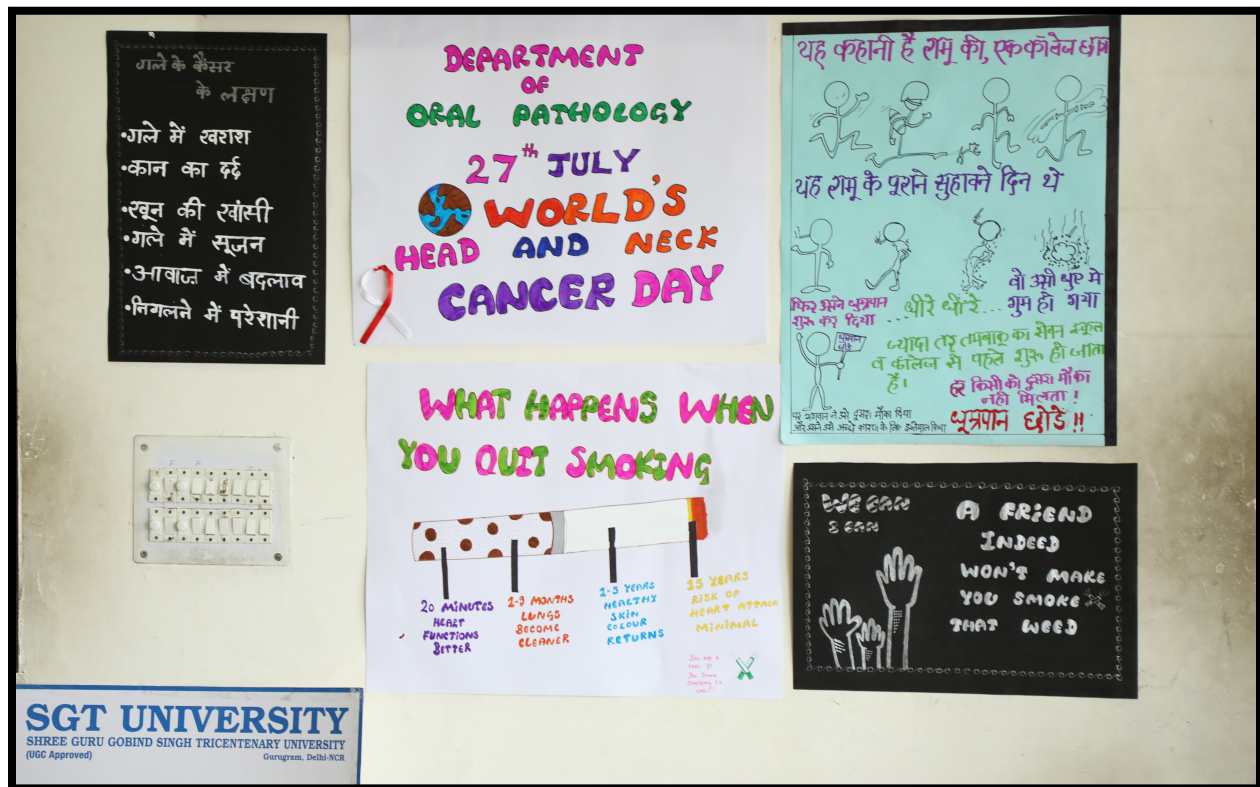 गले के कैंसर
के लक्षण
•गले में खराश
•कान का दर्द
•खून की खांसी
•गले में सूजन
•आवाज में बदलाव
•निगलने में परेशानी
DEPARTMENT
OF
ORAL PATHOLOGY
27th JULY
WORLD'S
HEAD AND NECK
CANCER DAY
यह कहानी है रामू की, एक कॉलेज छात्र
यह रामू के पुराने सुहावने दिन थे
फिर उसने धुम्रपान
शुरू कर दिया
...धीरे धीरे...
वो उसी धुएं में
गुम हो गया
धुम्रपान
छोड़ो
ज्यादा तर तमबाकू का सेवन स्कूल
व कॉलेज से पहले शुरू हो जाता
है।
हर किसी को दुसरा मौका
नही मिलता!
पर भगवान ने उसे दुसरा मौका दिया
और उसने उसे अच्छे कारण के लिए इस्तेमाल किया
धूम्रपान छोडे!!
WHAT HAPPENS WHEN
YOU QUIT SMOKING
20 MINUTES
HEART
FUNCTIONS
BETTER
1-9 MONTHS
LUNGS
BECOME
CLEANER
1-5 YEARS
HEALTHY
SKIN
COLOUR
RETURNS
15 YEARS
RISK OF
HEART ATTACK
MINIMAL
WE CAN
I CAN
A FRIEND
INDEED
WON'T MAKE
YOU SMOKE
THAT WEED
SGT UNIVERSITY
SHREE GURU GOBIND SINGH TRICENTENARY UNIVERSITY
(UGC Approved) Gurugram, Delhi-NCR